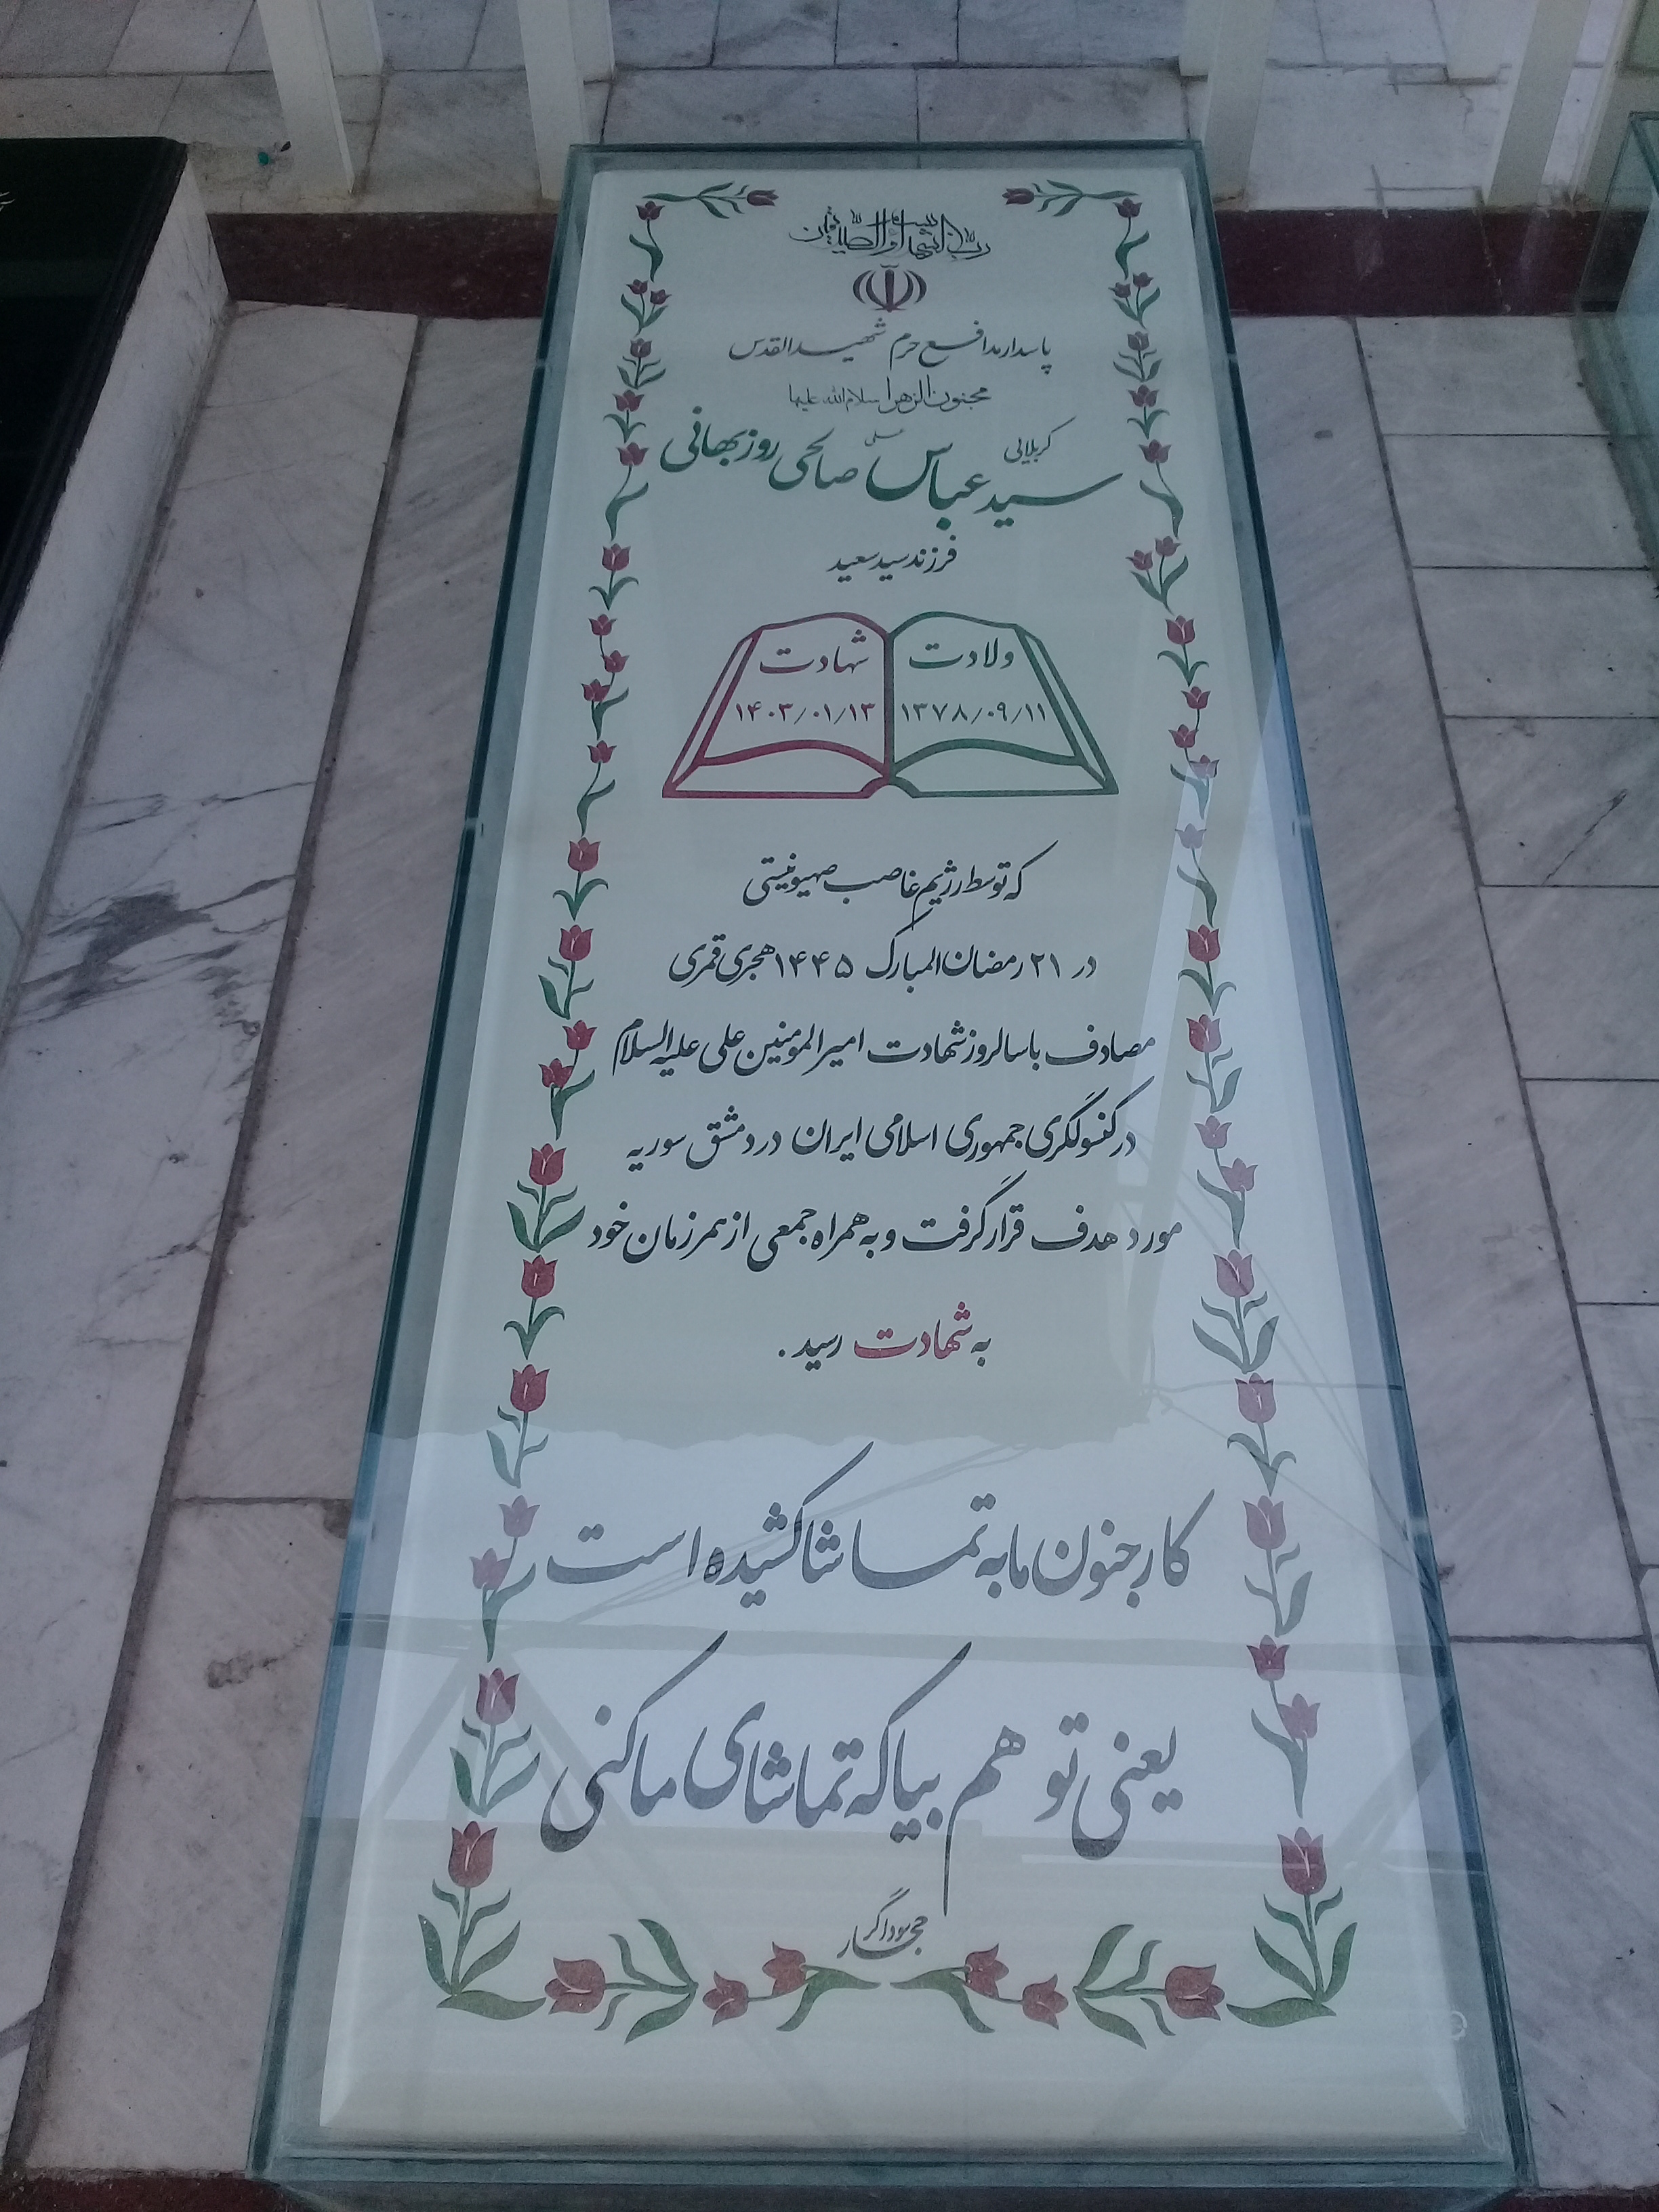 بسم الله رب الشهداء و الصدیقین
پاسدار مدافع حرم شهید القدس
مجنون الزهرا سلام الله علیها
کربلایی
سید عباس علی صالحی روزبهانی
فرزند سید سعید
ولادت شهادت
۱۳۷۸/۰۹/۱۱ ۱۴۰۳/۰۱/۱۳
که توسط رژیم غاصب صهیونیستی
در ۲۱ رمضان المبارک ۱۴۴۵ هجری قمری
مصادف با سالروز شهادت امیرالمومنین علی علیه السلام
در کنسولگری جمهوری اسلامی ایران در دمشق سوریه
مورد هدف قرار گرفت و به همراه جمعی از همرزمان خود
به شهادت رسید.
کار جنون ما به تماشا کشیده است
یعنی تو هم بیا که تماشای ما کنی
حجار سوداگر